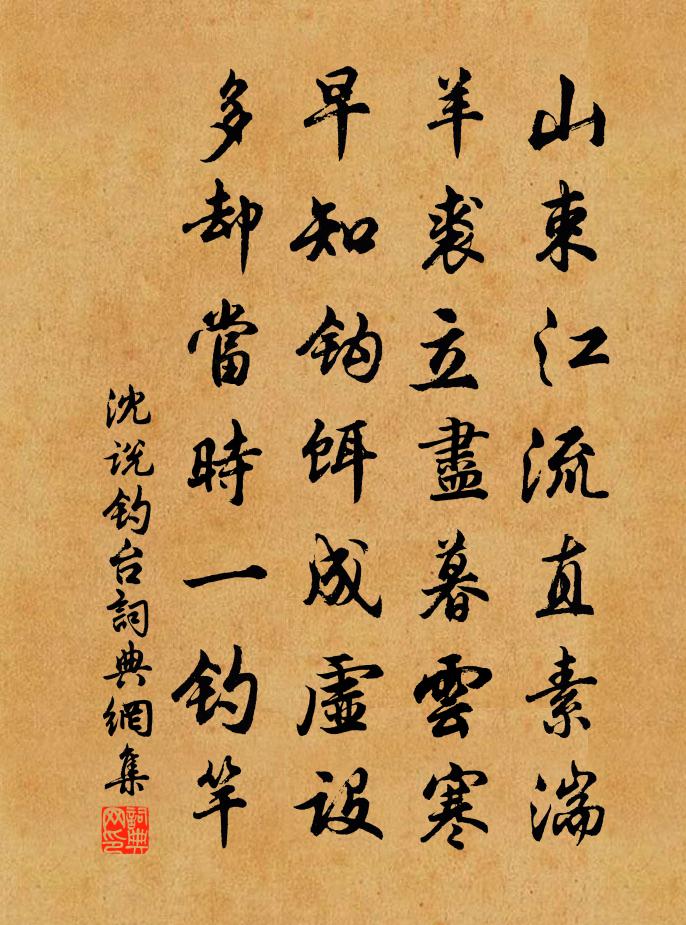 山束江流直素湍
羊裘立盡暮雲寒
早知鈎餌成虛設
多却當時一釣竿
沈説釣台詞典網集
詞典网印